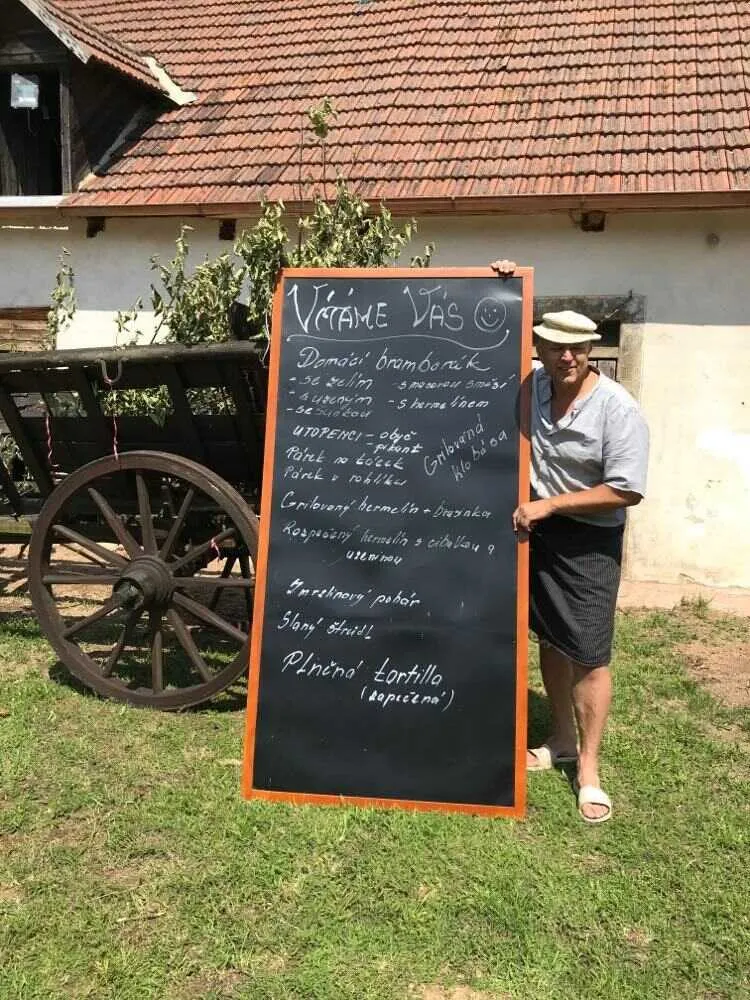 VÍTÁME VÁS
Domácí bramborák
- se zelím - s masovou směsí
- s uzeným - s hermelínem
- se
UTOPENCI - obyč
pikant
Párek na
Párek v rohlíku
Grilovaná
klobása
Grilovaný hermelín + brusinka
Rozpečený hermelín s cibulkou a
uzeninou
Zmrzlinový pohár
Slaný štrúdl
Plněná tortilla
(zapečená)